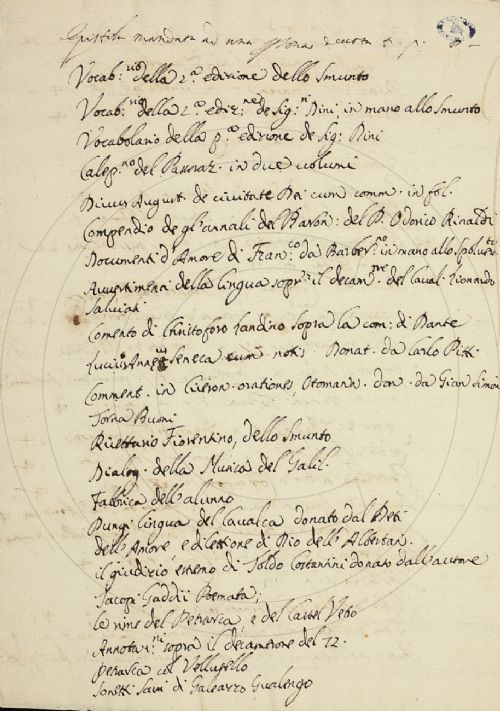 Epistola mandata ad una psona
Vocab:rio della 2.a edizione dello Smunto
Vocab:rio della 2.a ediz:ne de Sig:ri Dini, in mano allo Smunto
Vocabolario della p.a edizione de Sig: Dini
Calep:no del Passeraz. in due volumi
Divus August. de civitate Dei cum comm. in fol.
Compendio de gl'annali del Baron: del P. Odorico Rinaldi
Documenti d'Amore di Fran:co da Barber:no in mano allo
Avvertimenti della lingua sopr: il decam:ne del Caval. Lionardo
Salviati
Comento di Christoforo Landino sopra la com: di Dante
Lucius Anneus Seneca cum notis Donat. da Carlo Pitti
Comment. in Ciceron. orationes, Otomann. don. da Gian Simon
Torna Buoni
Ricettario Fiorentino, dello Smunto
Dialog. della Musica del Galil.
Fabbrica dell'alunno
Pungi lingua del Cavalca donato dal
dell'Amore, e dilettione di Dio dell'Albertan.
il giudizio estremo di Toldo Costantini donato dall'autore
Jacopi Gaddii Poemata;
le rime del Petrarca, e del Castel Vetro
Annotaz:ni sopra il decamerone del 72.
Petrarca col Vellutello
Sonetti di Galeazzo Gualengo